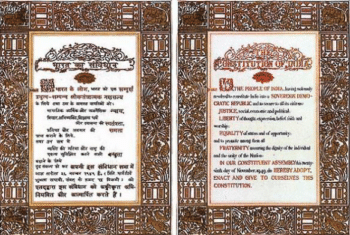 भारत का संविधान
हम भारत के लोग, भारत को एक सम्पूर्ण
प्रभुत्व-सम्पन्न लोकतंत्रात्मक गणराज्य
बनाने के लिये, तथा उस के समस्त नागरिकों को:
सामाजिक, आर्थिक और राजनैतिक न्याय,
विचार, अभिव्यक्ति, विश्वास, धर्म
और उपासना की स्वतंत्रता,
प्रतिष्ठा और अवसर की समता
प्राप्त कराने के लिये,
तथा उन सब में
व्यक्ति की गरिमा और राष्ट्र की
एकता सुनिश्चित करने वाली बन्धुता
बढ़ाने के लिये
दृढ़ संकल्प हो कर अपनी इस संविधान सभा में
आज तारीख २६ नवम्बर, १९४९ ई०
एतद्द्वारा इस संविधान को अंगीकृत, अधि-
नियमित और आत्मार्पित करते हैं।
CONSTITUTION OF INDIA
WE, THE PEOPLE OF INDIA, having solemnly
resolved to constitute India into a SOVEREIGN DEMO-
CRATIC REPUBLIC and to secure to all its citizens:
JUSTICE, social, economic and political;
LIBERTY of thought, expression, belief, faith and
worship;
EQUALITY of status and of opportunity;
and to promote among them all
FRATERNITY assuring the dignity of the individual
and the unity of the Nation;
IN OUR CONSTITUENT ASSEMBLY this twenty-
sixth day of November, 1949, do HEREBY ADOPT,
ENACT AND GIVE TO OURSELVES THIS
CONSTITUTION.